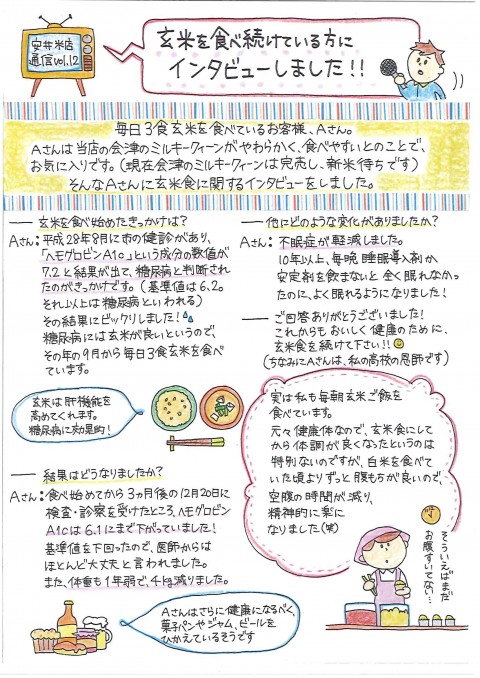 安井米店
通信vol.12
玄米を食べ続けている方に
インタビューしました!!
毎日3食玄米を食べているお客様、Aさん。
Aさんは当店の会津のミルキークィーンがやわらかく、食べやすいとのことで、
お気に入りです。(現在会津のミルキークィーンは完売し、新米待ちです)
そんなAさんに玄米食に関するインタビューをしました。
― 玄米を食べ始めたきっかけは?
Aさん:平成28年8月に市の健診があり、
「ヘモグロビンA1c」という成分の数値が
7.2と結果が出て、糖尿病と判断され
たのがきっかけです。(基準値は6.2。
それ以上は糖尿病といわれる)
その結果にビックリしました!
糖尿病には玄米が良いというので、
その年の9月から毎日3食玄米を食べ
ています。
玄米は肝機能を
高めてくれます。
糖尿病に効果的!
― 結果はどうなりましたか?
Aさん:食べ始めてから3ヵ月後の12月20日に
検査・診察を受けたところ、ヘモグロビン
A1cは6.1にまで下がっていました!
基準値を下回ったので、医師からは
ほとんど大丈夫と言われました。
また、体重も1年弱で、4kg減りました。
Aさんはさらに健康になるべく、
菓子パンやジャム、ビールを
ひかえているそうです
― 他にどのような変化がありましたか?
Aさん:不眠症が軽減しました。
10年以上、毎晩睡眠導入剤か
安定剤を飲まないと全く眠れなかっ
たのに、よく眠れるようになりました!
― ご回答ありがとうございました!
これからもおいしく健康のために、
玄米食を続けて下さい!!
(ちなみにAさんは、私の高校の恩師です)
実は私も毎朝玄米ご飯を
食べています。
元々健康体なので、玄米食にして
から体調が良くなったというのは
特別ないのですが、白米を食べて
いた頃よりずっと腹もちが良いので、
空腹の時間が減り、
精神的に楽に
なりました(笑)
そういえばまだ
お腹すいてない…